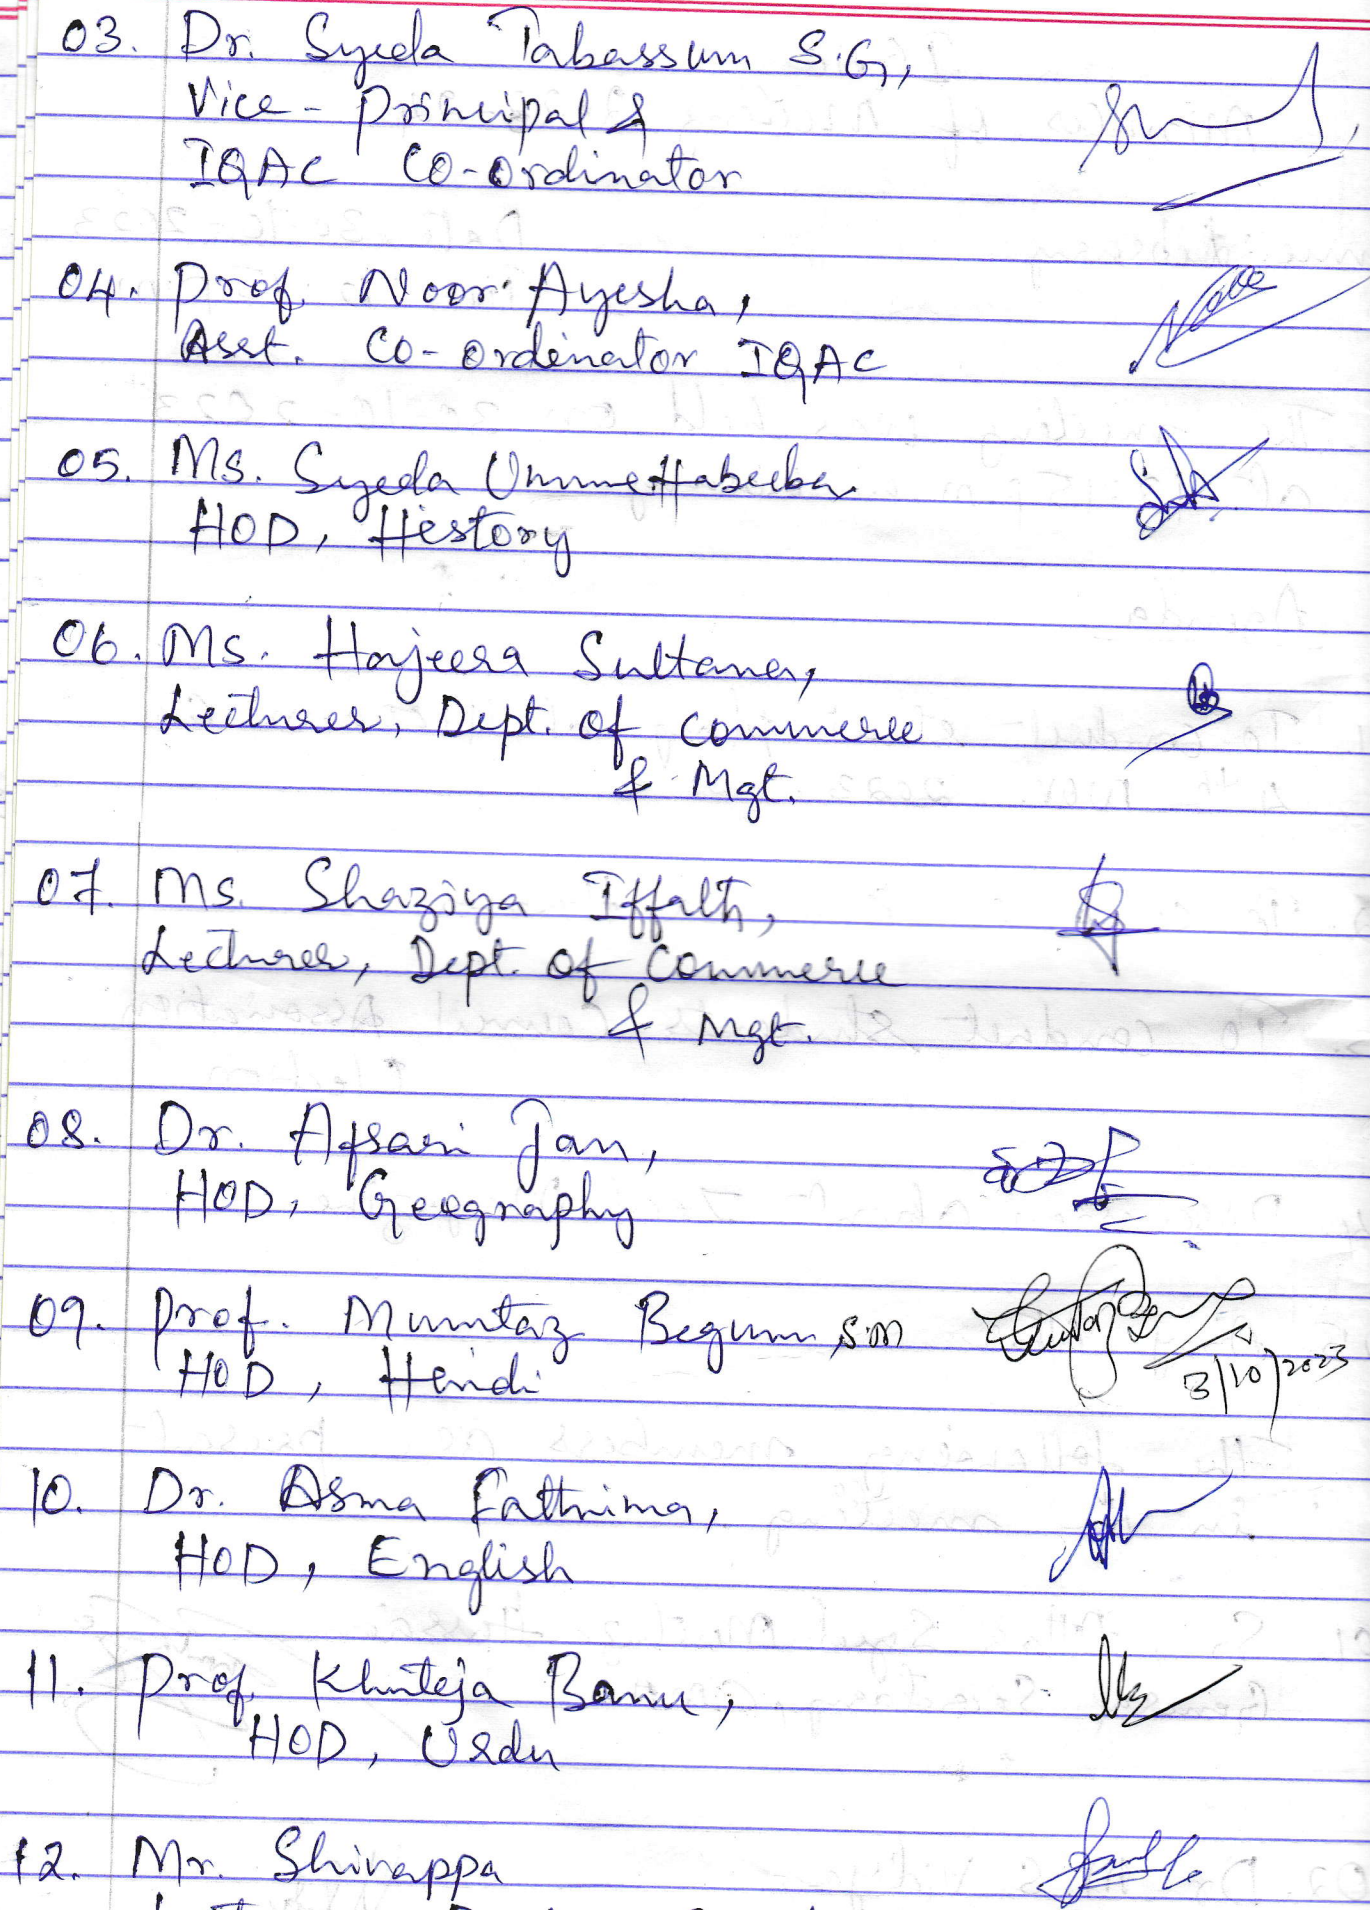 03. Dr. Syeda Tabassum S.G,
Vice - Principal &
IQAC Co-ordinator
04. Prof. Noor Ayesha,
Asst. Co-ordinator IQAC
05. Ms. Syeda Umme Habeeba
HOD, History
06. Ms. Hajeera Sultana,
Lecturer, Dept. of Commerce
& Mgt.
07. Ms. Shaziya Iffath,
Lecturer, Dept. of Commerce
& Mgt.
08. Dr. Afsari Jan,
HOD, Geography
09. Prof. Mumtaz Begum S.M
HOD, Hindi
3/10/2023
10. Dr. Asma Fathima,
HOD, English
11. Prof. Khuteja Banu,
HOD, Urdu
12. Mr. Shivappa